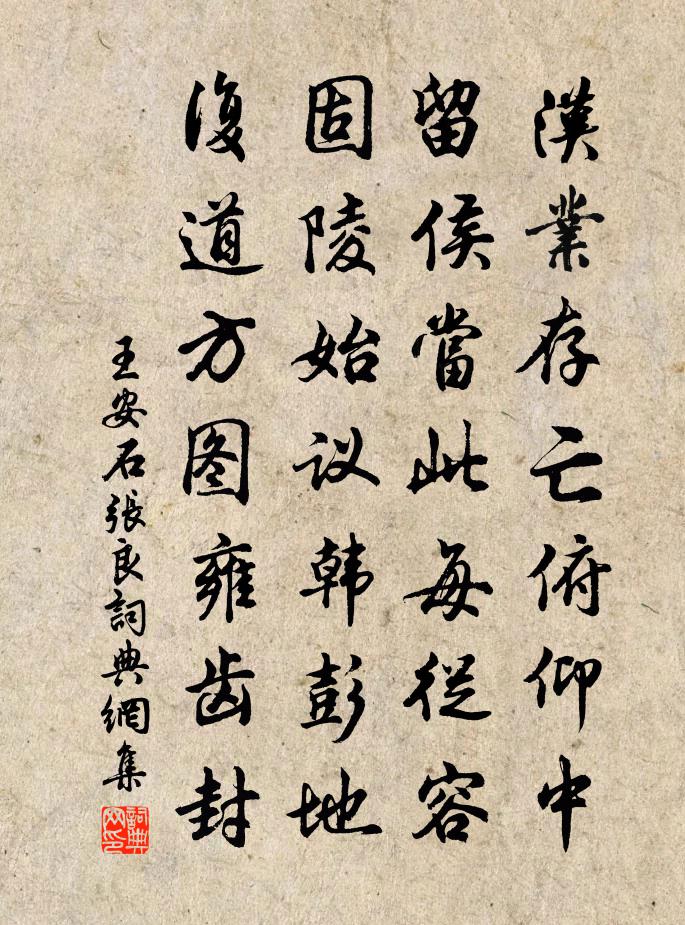 漢業存亡俯仰中
留侯當此每從容
固陵始议韩彭地
復道方图雍齿封
王安石張良詞典網集
詞典网印